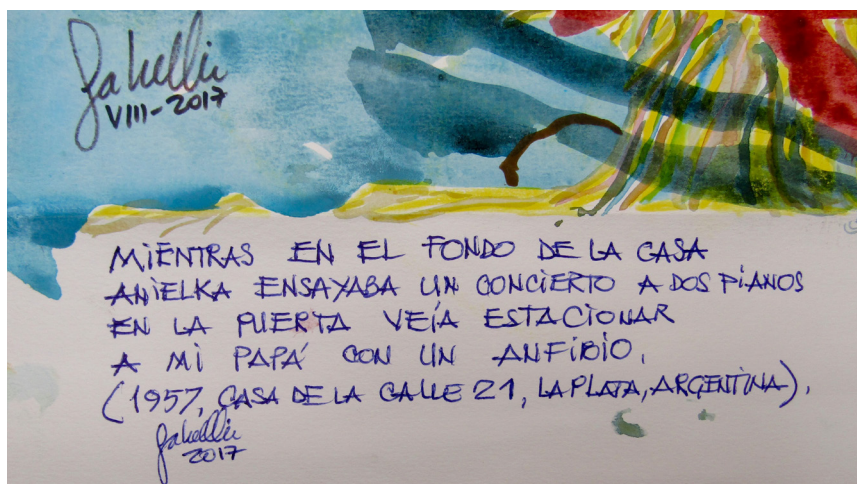 VIII-2017
MIENTRAS EN EL FONDO DE LA CASA
ANIELKA ENSAYABA UN CONCIERTO A DOS PIANOS
EN LA PUERTA VEÍA ESTACIONAR
A MI PAPÁ CON UN ANFIBIO.
(1957, CASA DE LA CALLE 21, LA PLATA, ARGENTINA).
2017